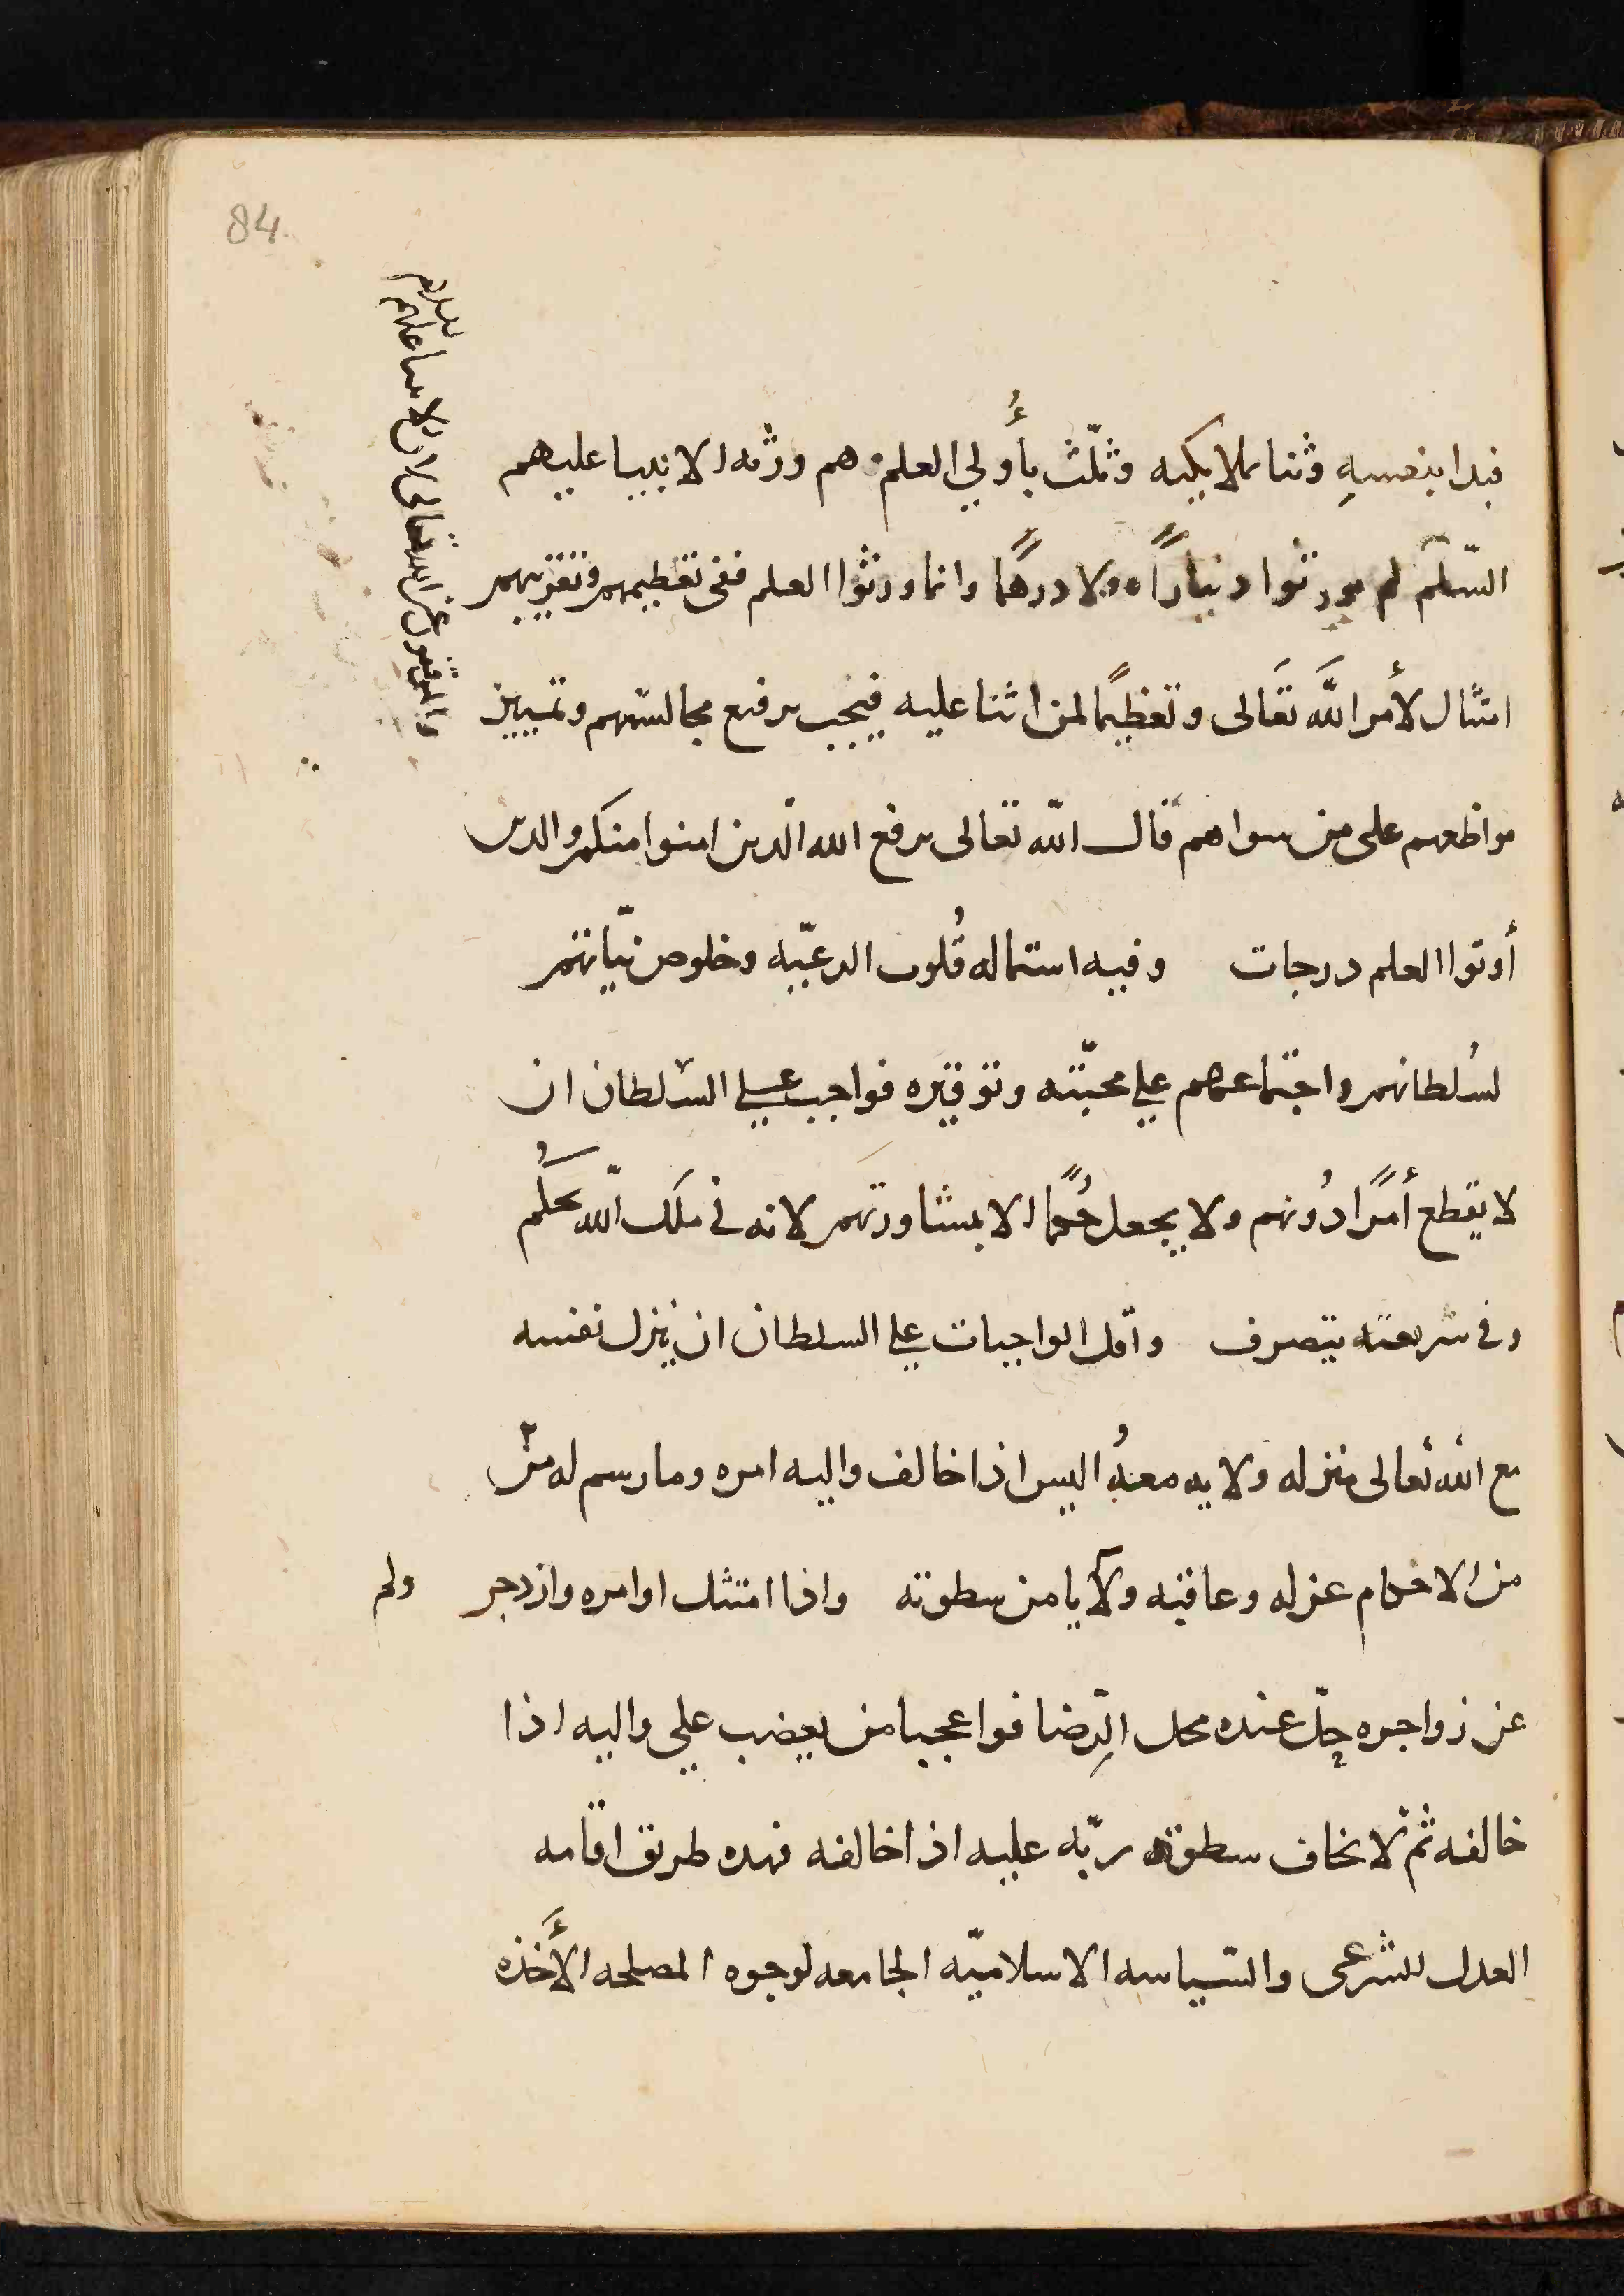 84
فبدا بنفسهِ وثنا بملايكيه وثلّث بأُولي العلم هم ورثه الانبيا عليهم
السّلم لم يورثوا ديناراً ولا درهمًا وانما ورثوا العلم ففى تعظيمهم وتعزيزهم
امتثال لأمر اللَّه تعَالى وتعظيمًا لمن اثنا عليه فيجب يرفع مجالستهم وتمييز
مواظعهم على من سواهم قال اللّه تعالى يرفع الله الّذين امنوا منكم والدين
أوتوا العلم درجات وفيه استماله قُلوب الرعيّه وخلوص نيّاتهم
لسُلطانهم واجتماعهم علي محبّته وتوقيره فواجب علي السّلطان ان
لا يقطع أمرًا دُونهم ولا يجعل حُكمًا الا بمشاورتهم لانه فى ملك اللّه يحكُم
وفى شريعته يتصرف واقل الواجبات علي السلطان ان ينزل نفسه
مع الله تعالى منزله ولايه معهُ اليس اذا خالف واليه امره وما رسم له من
من الاحكام عزله وعاقبه ولا يامن سطوته واذا امتثل اوامره وازدجر ولم
عن زواجره حلّ عنده محل الرِّضا فواعجبا من يغضب علي واليه اذا
خالفه ثم لا يخاف سطوة ربّه عليه اذا خالفه فهده طريق اقامه
العدل الشرعى والسّياسه الاسلاميّه الجامعه لوجوه المصلحه الأَخذه